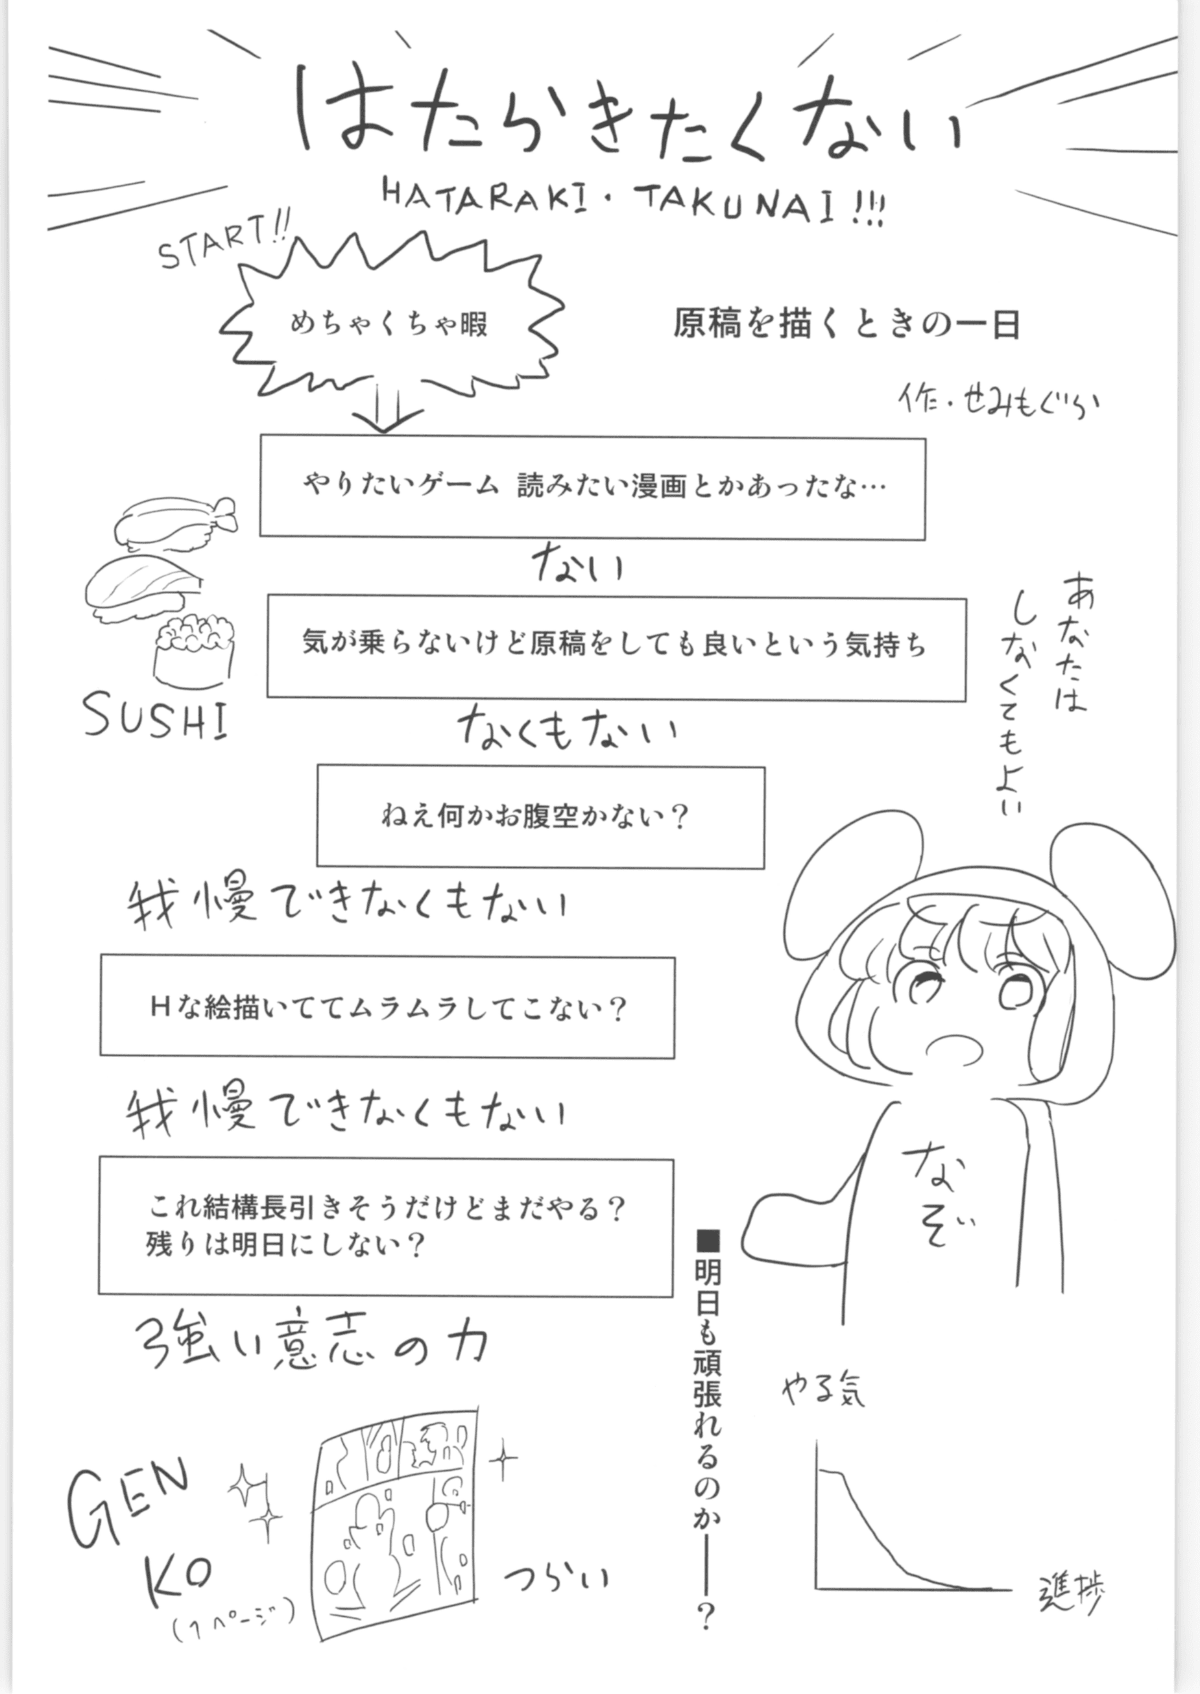 はたらきたくない
HATARAKI・TAKUNAI!!!
START!!
めちゃくちゃ暇
原稿を描くときの一日
作・せみもぐら
やりたいゲーム 読みたい漫画とかあったな…
ない
気が乗らないけど原稿をしても良いという気持ち
SUSHI
なくもない
あなたは
しなくてもよい
ねえ何かお腹空かない？
我慢できなくもない
Hな絵描いててムラムラしてこない？
我慢できなくもない
なぞぃ
これ結構長引きそうだけどまだやる？
残りは明日にしない？
強い意志の力
■明日も頑張れるのか――？
やる気
進捗
GEN
KO
(1ページ)
つらい